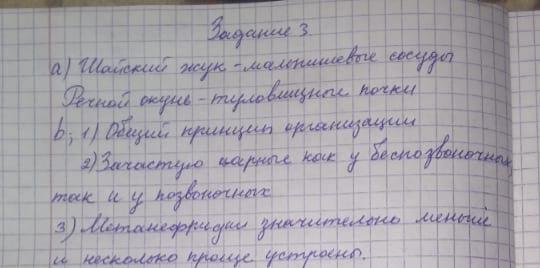 Задание 3.
а) Майский жук - мальпишевые сосуды
Речной окунь - туловищные почки
b; 1) Общий принцип организации
2) Зачастую парные как у беспозвоночных,
так и у позвоночных
3) Метанефридии значительно меньше
и несколько проще устроены.